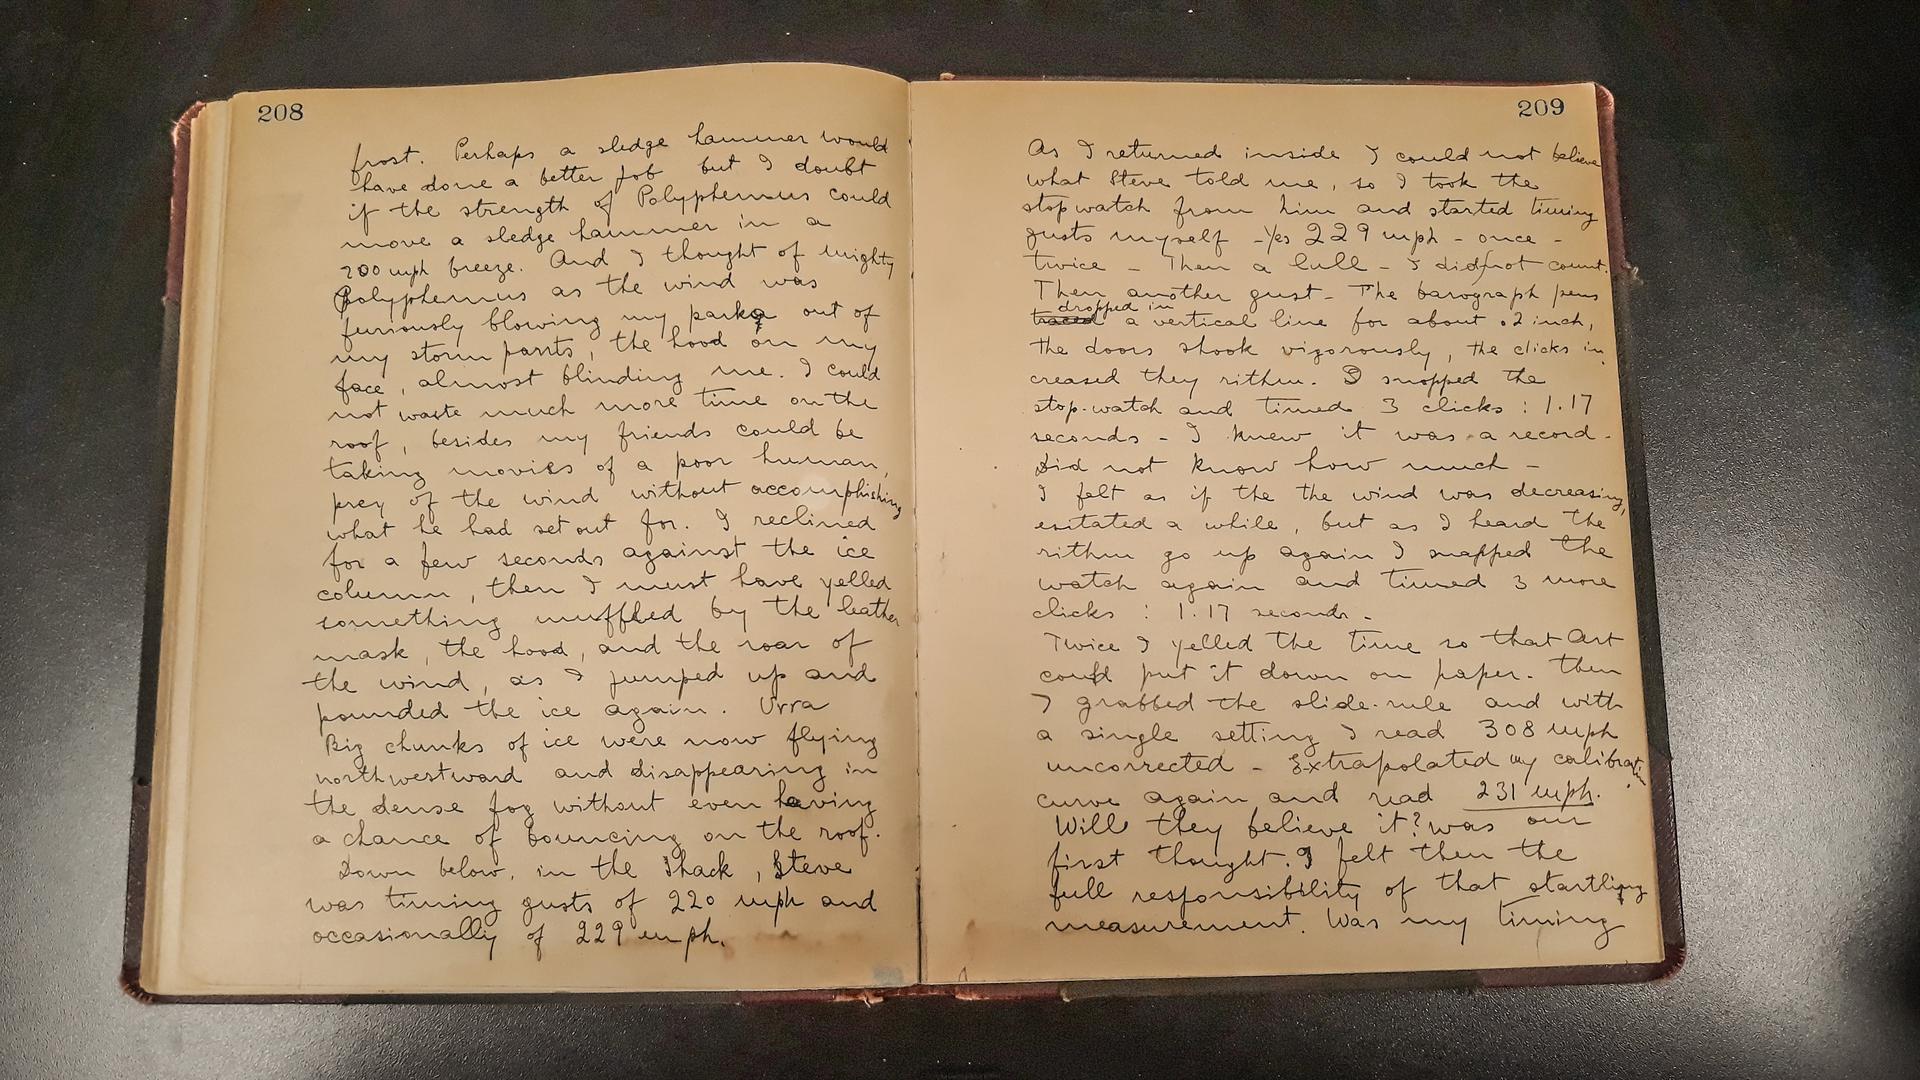 208
frost. Perhaps a sledge hammer would
have done a better job but I doubt
if the strength of Polyphemus could
move a sledge hammer in a
200 mph breeze. And I thought of mighty
Polyphemus as the wind was
furiously blowing my parka out of
my storm pants, the hood on my
face, almost blinding me. I could
not waste much more time on the
roof, besides my friends could be
taking movies of a poor human,
prey of the wind without accomphishing
what he had set out for. I reclined
for a few seconds against the ice
column, then I must have yelled
something muffled by the leather
mask, the hood, and the roar of
the wind, as I jumped up and
pounded the ice again. Urra
Big chunks of ice were now flying
northwestward and disappearing in
the dense fog without even having
a chance of bouncing on the roof.
Down below, in the Shack, Steve
was timing gusts of 220 mph and
occasionally of 229 mph.
209
As I returned inside I could not believe
what Steve told me, so I took the
stopwatch from him and started timing
gusts myself - Yes 229 mph - once -
twice - Then a lull - I did not count.
Then another gust - The barograph pens
dropped in
traced a vertical line for about .2 inch,
the doors shook vigorously, the clicks in
creased they rithm. I snapped the
stop-watch and timed 3 clicks : 1.17
seconds - I knew it was a record -
Did not know how much -
I felt as if the the wind was decreasing,
esitated a while, but as I heard the
rithm go up again I snapped the
watch again and timed 3 more
clicks : 1.17 seconds -
Twice I yelled the time so that Art
could put it down on paper. Then
I grabbed the slide-rule and with
a single setting I read 308 mph
uncorrected - Extrapolated my calibration
curve again and read 231 mph.
Will they believe it? was our
first thought. I felt then the
full responsibility of that startling
measurement. Was my timing